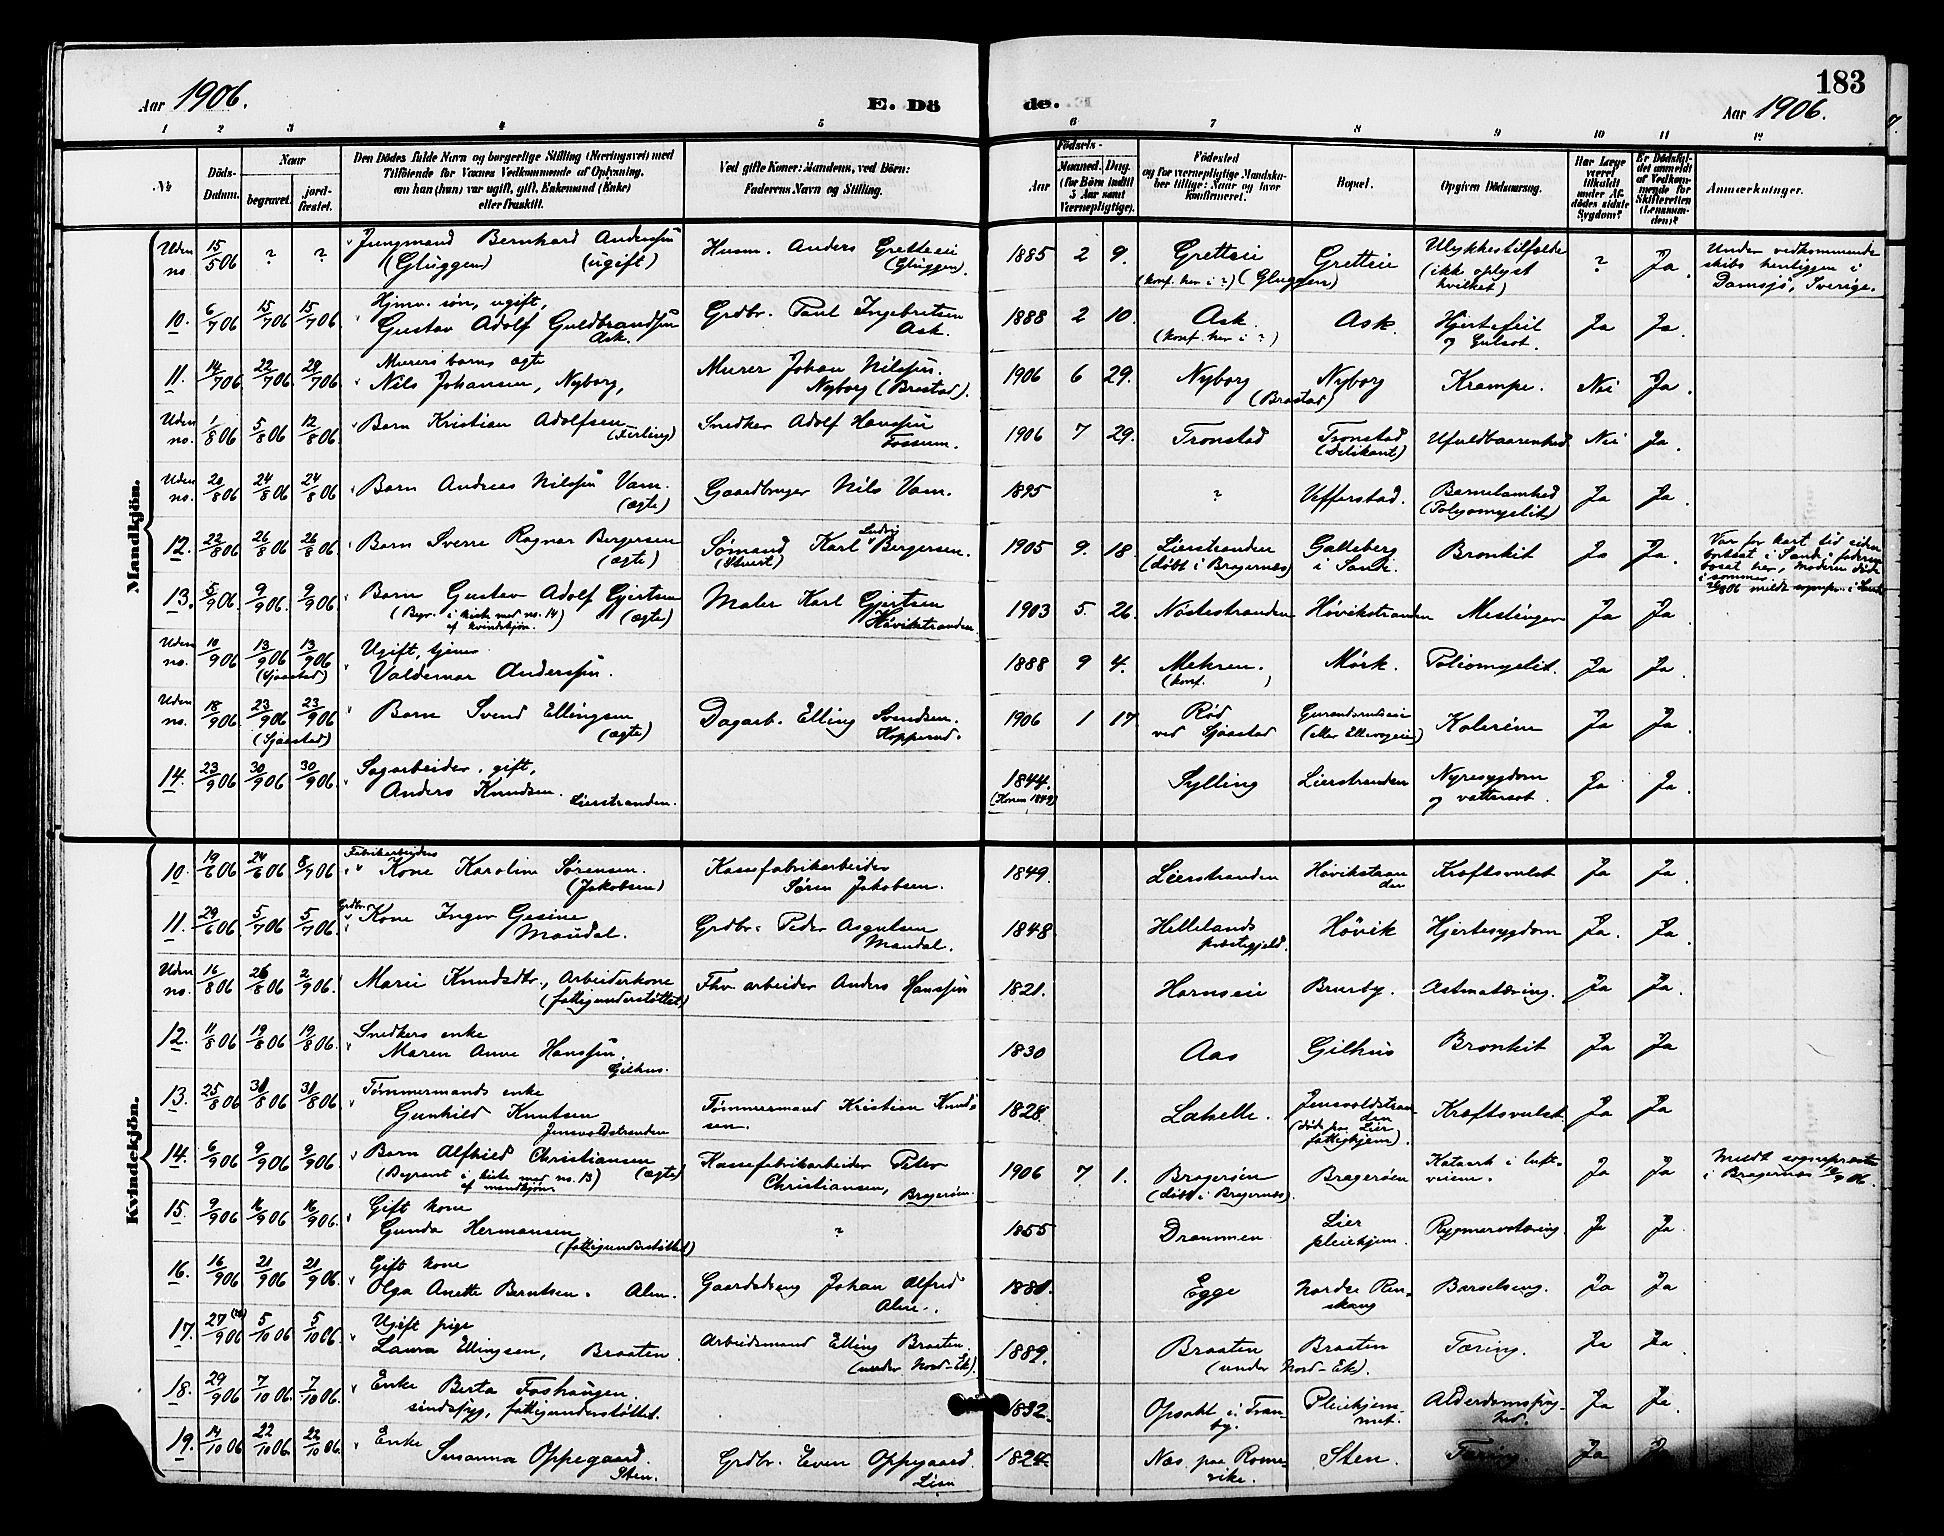 183
Aar 1906.
E. Dö
de.
Aar 1906.
1 2 3 4 5 6 7 8 9 10 11 12
№
Döds-
Datum.
Naar
begravet.
jord-
fæstet.
Den Dödes fulde Navn og borgerlige Stilling (Næringsvei) med
Tilföiende for Voxnes Vedkommende af Oplysning,
om han (hun) var ugift, gift, Enkemand (Enke)
eller fraskilt.
Ved gifte Koner: Mandens, ved Börn:
Faderens Navn og Stilling.
Födsels-
Aar
Maaned. Dag.
(for Börn indtil
5 Aar samt
Værnepligtige).
Födested
og for værnepligtige Mandska-
ber tillige: Naar og hvor
konfirmeret.
Bopæl.
Opgiven Dödsaarsag.
Har Læge
været
tilkaldt
under Af-
dödes sidste
Sygdom?
Er Dödsfal-
det anmeldt
af Vedkom-
mende for
Skifteretten
(Lensman-
den)?
Anmærkninger.
Mandkjön.
Uden no 15/5 06 ? ? Jungmand Bernhard Anderssøn
(Gluggen) (ugift)
Husm. Anders Gretteeie
(Gluggen).
1885 2 9. Gretteie
(konf. her i ?) (Gluggen)
Gretteie
Ulykkestilfælde
(ikk oplyst
hvilket)
? Ja.
Under vedkommende
skibs henliggen i
Damsjø, Sverige.
10. 6/7 06 15/7 06 15/7 06 Hjmv. søn, ugift,
Gustav Adolf Guldbrandsøn
Ask.
Grdbr. Paul Ingebretsen
Ask.
1888 2 10. Ask.
(konf. her i ?)
Ask. Hjertefeil
og Gulsot.
Ja Ja.
11. 14/7 06 22/7 06 29/7 06 Murers barn ægte
Nils Johansen, Nyborg,
Murer Johan Nilssøn.
Nyborg (Brastad).
1906 6 29. Nyborg
(Brastad)
Nyborg Krampe. Nei Ja.
Uden no. 1/8 06 5/8 06 12/8 06 Barn Kristian Adolfsen
Snedker Adolf Hanssøn
Fossum.
1906 7 29. Tronstad Tronstad
Ufuldbaarenhed Nei Ja.
Uden no. 20/8 06 24/8 06 24/8 06 Barn Andreas Nilssøn Vam.
(ægte)
Gaardbruger Nils Vam.
1895 ? Ufferstad. Barnelamhed
(Polyomyelit)
Ja Ja.
12. 22/8 06 26/8 06 26/8 06 Barn Sverre Ragnar Bergersen
(ægte)
Sømand Karl Ludvig Bergersen.
(Stuert)
1905 9. 18. Lierstranden
(døbt i Bragernæs)
Galleberg
i Sande.
Bronkit Ja Ja.
Var for kort tid siden
bortsat i Sande, faderen
bosat her, moderen døde
i sommer
13. 5/9 06 9/9 06 9/9 06 Barn Gustav Adolf Gjertsen
(Begr. i kiste med no. 14) (ægte)
af kvindekjøn.
Maler Karl Gjertsen
Høvikstranden
1903 5. 26. Nøstestranden Høvikstranden Meslinger Ja Ja
Uden no. 10/9 06 13/9 06 13/9 06
(Sjaastad)
Ugift, tjener
Valdemar Anderssøn.
1888 9 4. Mehren.
(konf. )
Mørk. Poliomyelit. Ja Ja.
Uden no. 18/9 06 23/9 06 23/9 06
(Sjaastad)
Barn Svend Ellingsen
(ægte)
Dagarb. Elling Svendsen.
Kopperud.
1906 1 17. Rød
ved Sjaastad
Kolerine Ja Ja.
14. 23/9 06 30/9 06 30/9 06 Sagarbeider, gift,
Anders Knudsen. Lierstranden.
1844.
(Konen 1849)
Sylling Lierstranden Nyresygdom
og vattersot.
Ja Ja.
Kvindekjön.
10. 19/6 06 24/6 06 8/7 06 Fabrikarbeiders
Kone Karoline Sørensen.
(Jakobsen)
Kassefabrikarbeider
Søren Jakobsen.
1849. Lierstranden Høvikstran
den
Kræftsvulst Ja Ja.
11. 29/6 06 5/7 06 5/7 06 Grdbr.
Kone Inger Gesine
Maudal.
Grdbr. Peder Asgutsen
Maudal.
1848. Hellelands
præstegjeld.
Høvik Hjertesygdom Ja. Ja.
Uden no. 16/8 06 26/8 06 2/9 06 Marie Knudsdtr., Arbeiderkone
(fattigunderstøttet)
Fhv arbeider Anders Hanssøn
1821. Hornseie Bruerby. Astmatæring. Ja Ja.
12. 11/8 06 19/8 06 19/8 06 Snedkers enke
Maren Anne Hanssøn.
Gilhus.
1830 Aas Gilhus Bronkit Ja Ja.
13. 25/8 06 31/8 06 31/8 06 Tømmermands enke
Gunhild Knutsen
Jensvoldstranden
Tømmermand Kristian Knud-
sen.
1828. Lahelle. Jensvoldstran
den
(døde paa Lier
fattighjem).
Kræftsvulst. Ja Ja
14. 6/9 06 9/9 06 9/9 06 Barn Alfhild Christiansen
(Begravet i kiste med no. 13) (ægte)
af mandkjøn.
Kassefabrikarbeider Peter
Christiansen, Bragerøen.
1906 7 1. Bragerøen
(døbt i Bragernæs)
Bragerøen Katarrh i luft-
veiene.
Ja Ja.
Meldt sognepræsten
i Bragernæs 12/9 06.
15. 9/9 06 16/9 06 16/9 06 Gift kone
Gunda Hermansen
(fattigunderstøttet)
?
1855 Drammen Lier
pleiehjem.
Rygmarvstæring. Ja Ja.
16. 16/9 06 21/9 06 21/9 06. Gift kone
Olga Anette Berntsen. Alm.
Gaardsdreng Johan Alfred
Alm.
1881. Egge Nordre Ren-
skaug
Barselseng. Ja Ja
17. 27/9 06 5/10 06 5/10 06 Ugift pige
Laura Ellingsen, Braaten.
Arbeidsmand Elling Braaten.
(under Nord-Ek).
1889. Braaten Braaten
(under Nord-Ek).
Tæring. Ja Ja.
18. 29/9 06 7/10 06. 7/10 06. Enke Berta Foshaugen.
sindssyg, fattigunderstøttet.
1832. Opsahl i Tran-
by.
Pleiehjem-
met.
Alderdomssvag-
hed.
Ja Ja.
19. 14/10 06 22/10 06. 22/10 06. Enke
Susanna Oppegaard.
Sten.
Grdbr. Even Oppegaard.
1824. Næs paa Rome-
rike.
Sten. Tæring. Ja Ja.